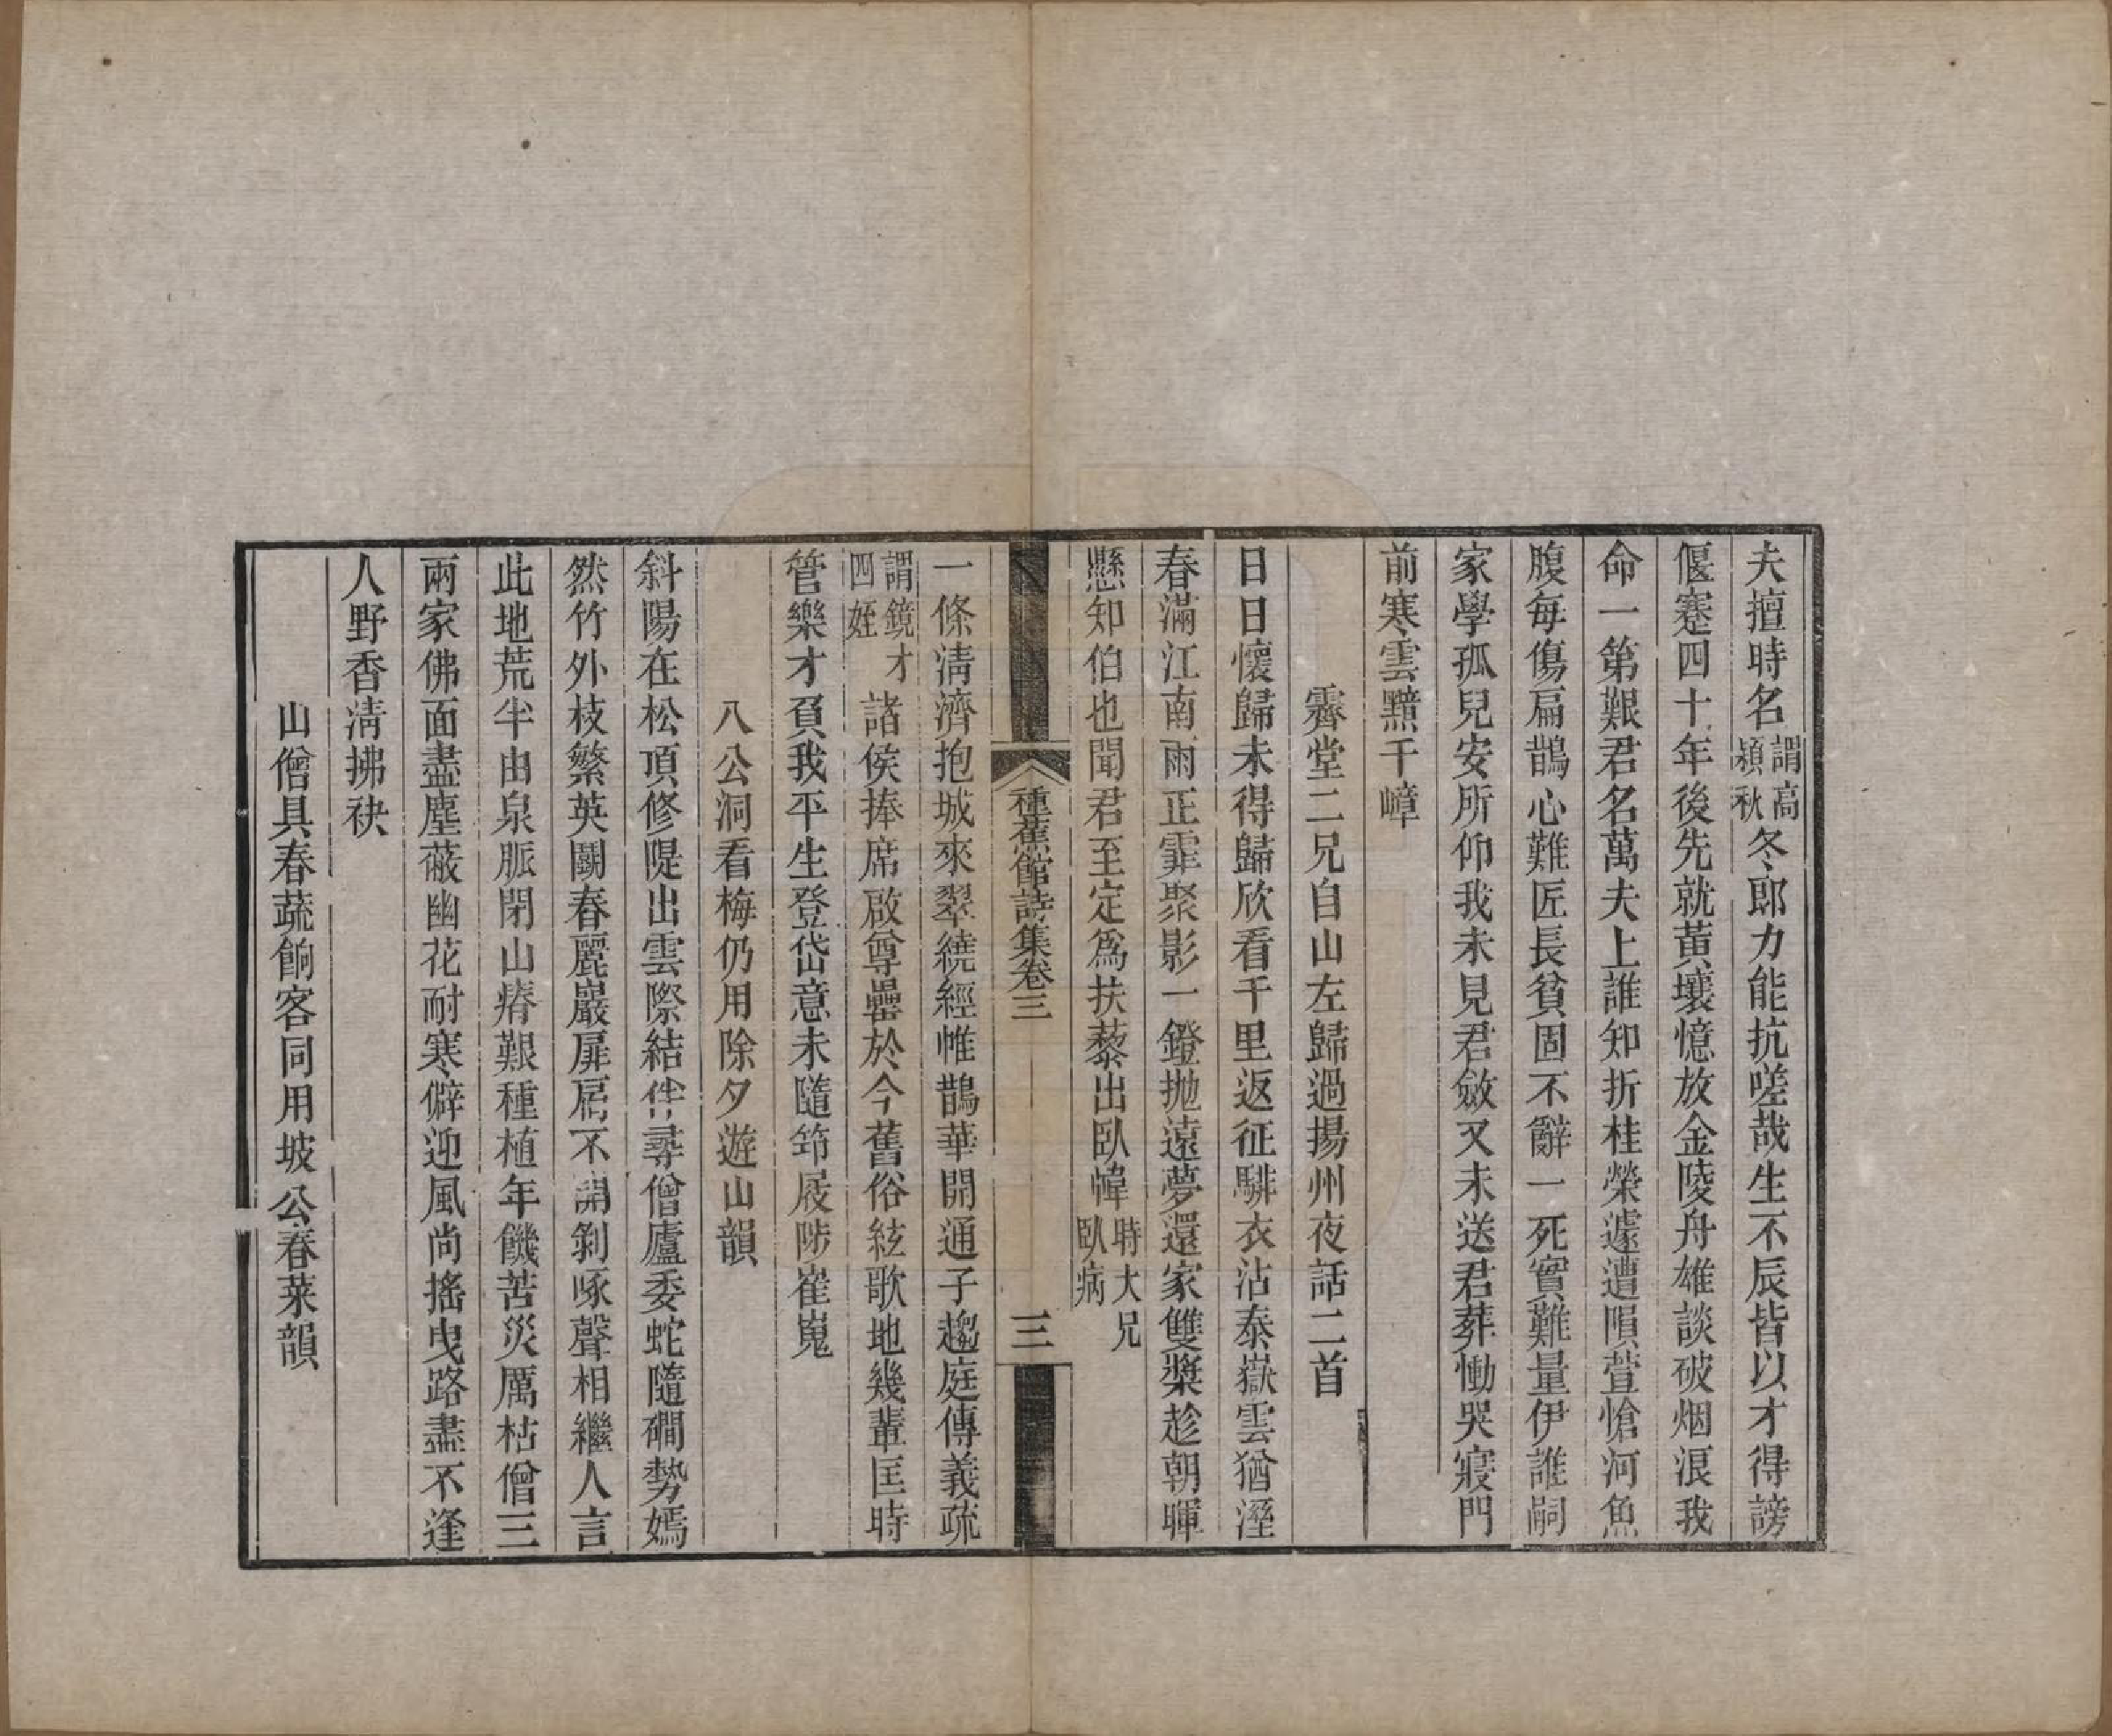 夫擅時名謂高潁秋冬郎力能抗嗟哉生不辰皆以才得謗
偃蹇四十年後先就黃壤憶放金陵舟雄談破烟浪我
命一第艱君名萬夫上誰知折桂榮遽遭隕萱愴河魚
腹每傷扁鵲心難匠長貧固不辭一死實難量伊誰嗣
家學孤兒安所仰我未見君斂又未送君葬慟哭寢門
前寒雲黯千嶂
霽堂二兄自山左歸過揚州夜話二首
日日懷歸未得歸欣看千里返征騑衣沾泰嶽雲猶溼
春滿江南雨正霏聚影一鐙拋遠夢還家雙槳趁朝暉
懸知伯也聞君至定爲扶藜出臥幃時大兄臥病
種蕉館詩集卷三
三
一條淸濟抱城來翠繞經帷鵲華開通子趨庭傳義疏
謂鏡才四姪諸侯捧席啟尊罍於今舊俗絃歌地幾輩匡時
管樂才負我平生登岱意未隨笻屐陟崔嵬
八公洞看梅仍用除夕遊山韻
斜陽在松頂修隄出雲際結伴尋僧廬委蛇隨磵勢嫣
然竹外枝繁英鬭春麗巖扉扃不開剝啄聲相繼人言
此地荒半由泉脈閉山瘠艱種植年饑苦災厲枯僧三
兩家佛面盡塵蔽幽花耐寒僻迎風尚搖曳路盡不逢
人野香淸拂袂
山僧具春蔬餉客同用坡公春菜韻